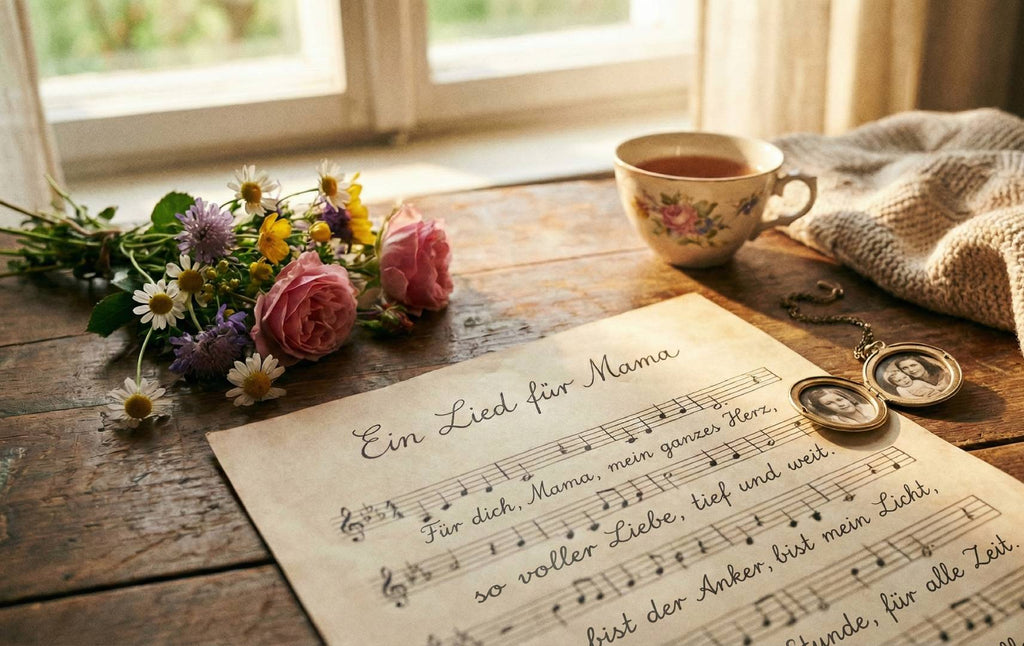 Ein Lied für Mama
Für dich, Mama, mein ganzes Herz,
so voller Liebe, tief und weit.
bist der Anker, bist mein Licht,
für alle Zeit.